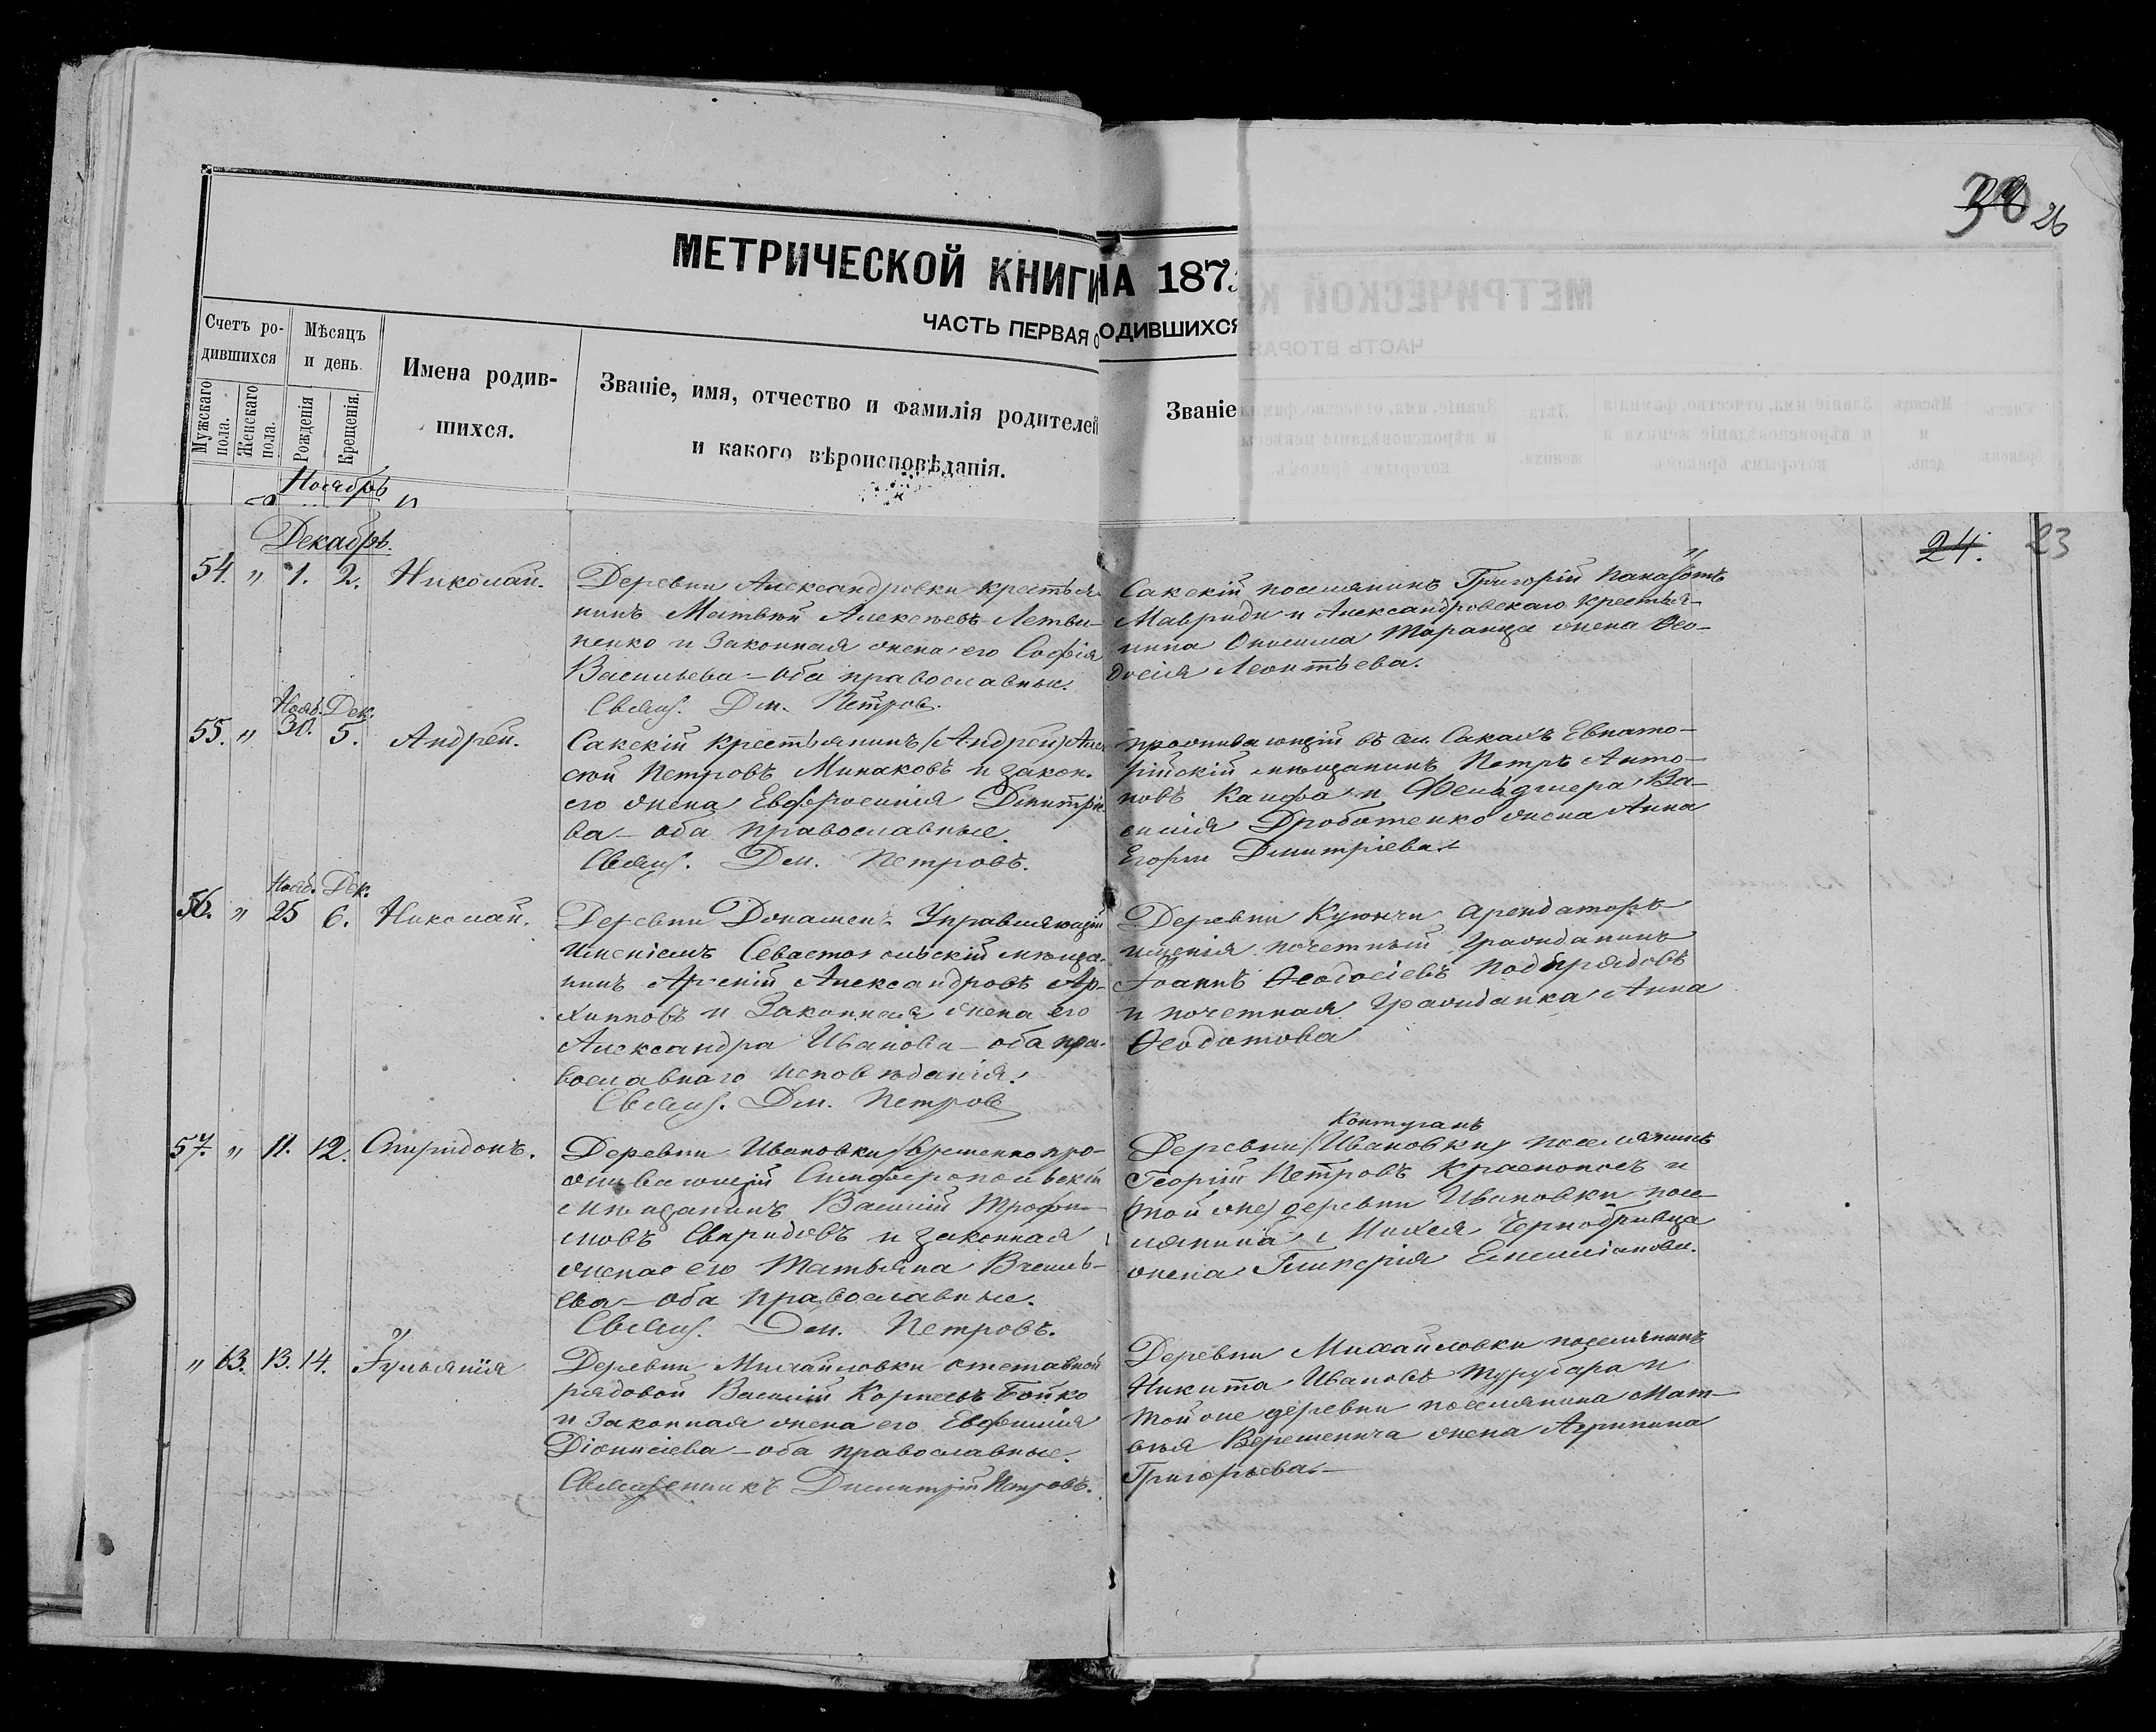 30 26
МЕТРИЧЕСКОЙ КНИГИ НА 187
ЧАСТЬ ПЕРВАЯ О РОДИВШИХСЯ
Счетъ ро-
дившихся
Мужскаго пола.
Женскаго пола.
Мѣсяцъ
и день.
Рожденія
Крещенія.
Имена родив-
шихся.
Званіе, имя, отчество и фамилія родителей
и какого вѣроисповѣданія.
Званіе
Ноябрь
24. 23
Декабрь.
54. " 1. 2. Николай.
Деревни Александровки крестья-
нинъ Матвѣй Алексѣевъ Летви-
ненко и Законная жена его Софія
Васильева – оба православные.
Свящ. Дм. Петров.
Сакскій поселянинъ Григорій Панаіотъ
Мавриди и Александровскаго крестья-
нина Онисима Таранца жена Ѳео-
досія Леонтьева.
Нояб. Дек.
55. " 30. 5. Андрей.
Сакскій крестьянинъ (Андрей) Але
сѣй Петровъ Минаковъ и закон.
его жена Евфросинія Димитріе
ва – оба православные.
Свящ. Дм. Петровъ.
проживающій въ сел. Сакахъ Евпато-
рійскій мѣщанинъ Петръ Анто-
новъ Канфа и Фельдшера Ва-
силія Дроботенко жена Анна
Егорги Дмитріева.
Нояб. Дек.
56. " 25 6. Николай.
Деревни Управляющій
имѣніемъ Севастопольскій мѣща-
нинъ Арсеній Александровъ Ар-
хиповъ и Законная жена его
Александра Иванова – оба пра-
вославнаго исповѣданія.
Свящ. Дм. Петров
Деревни арендаторъ
имѣнія почетный гражданинъ
Іоаннъ Ѳеодосіевъ
и почетная гражданка Анна
Ѳеодотова
57. " 11. 12. Спиридонъ.
Деревни Ивановки временно про-
живающій Симферопольскій
мѣщанинъ Василій Трофи-
мовъ Свиридовъ и законная
жена его Татьяна Василь-
ева – оба православные.
Свящ. Дм. Петровъ.
Контуганъ
Деревни (Ивановки) поселянинъ
Георгій Петровъ Краснополъ и
(той же) деревни Ивановки посе-
лянина Михея Чернобривца
жена Гликерія Емелианова.
" 13. 13. 14. Іуліанія
Деревни Михайловки отставной
рядовой Василій Корнеевъ Бойко
и Законная жена его Евфимія
Діонисіева – оба православные.
Священникъ Димитрій Петровъ.
Деревни Михайловки поселянинъ
Никита Ивановъ Турубара и
той же деревни поселянина Мат-
вѣя Верешенича жена Агрипина
Григорьева. –